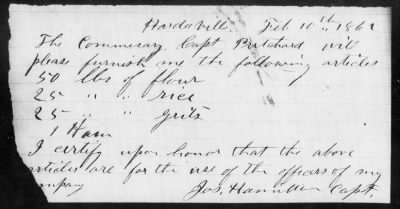 Hardeeville. Feb 10th, 1862
The Commissary, Capt Pritchard will
please furnish me the following articles
50 lbs of flour
25 " " rice
25 " " grits
1 Ham
I certify upon honor that the above
articles are for the use of the officers of my
mpany Jos. Hamilton Capt.